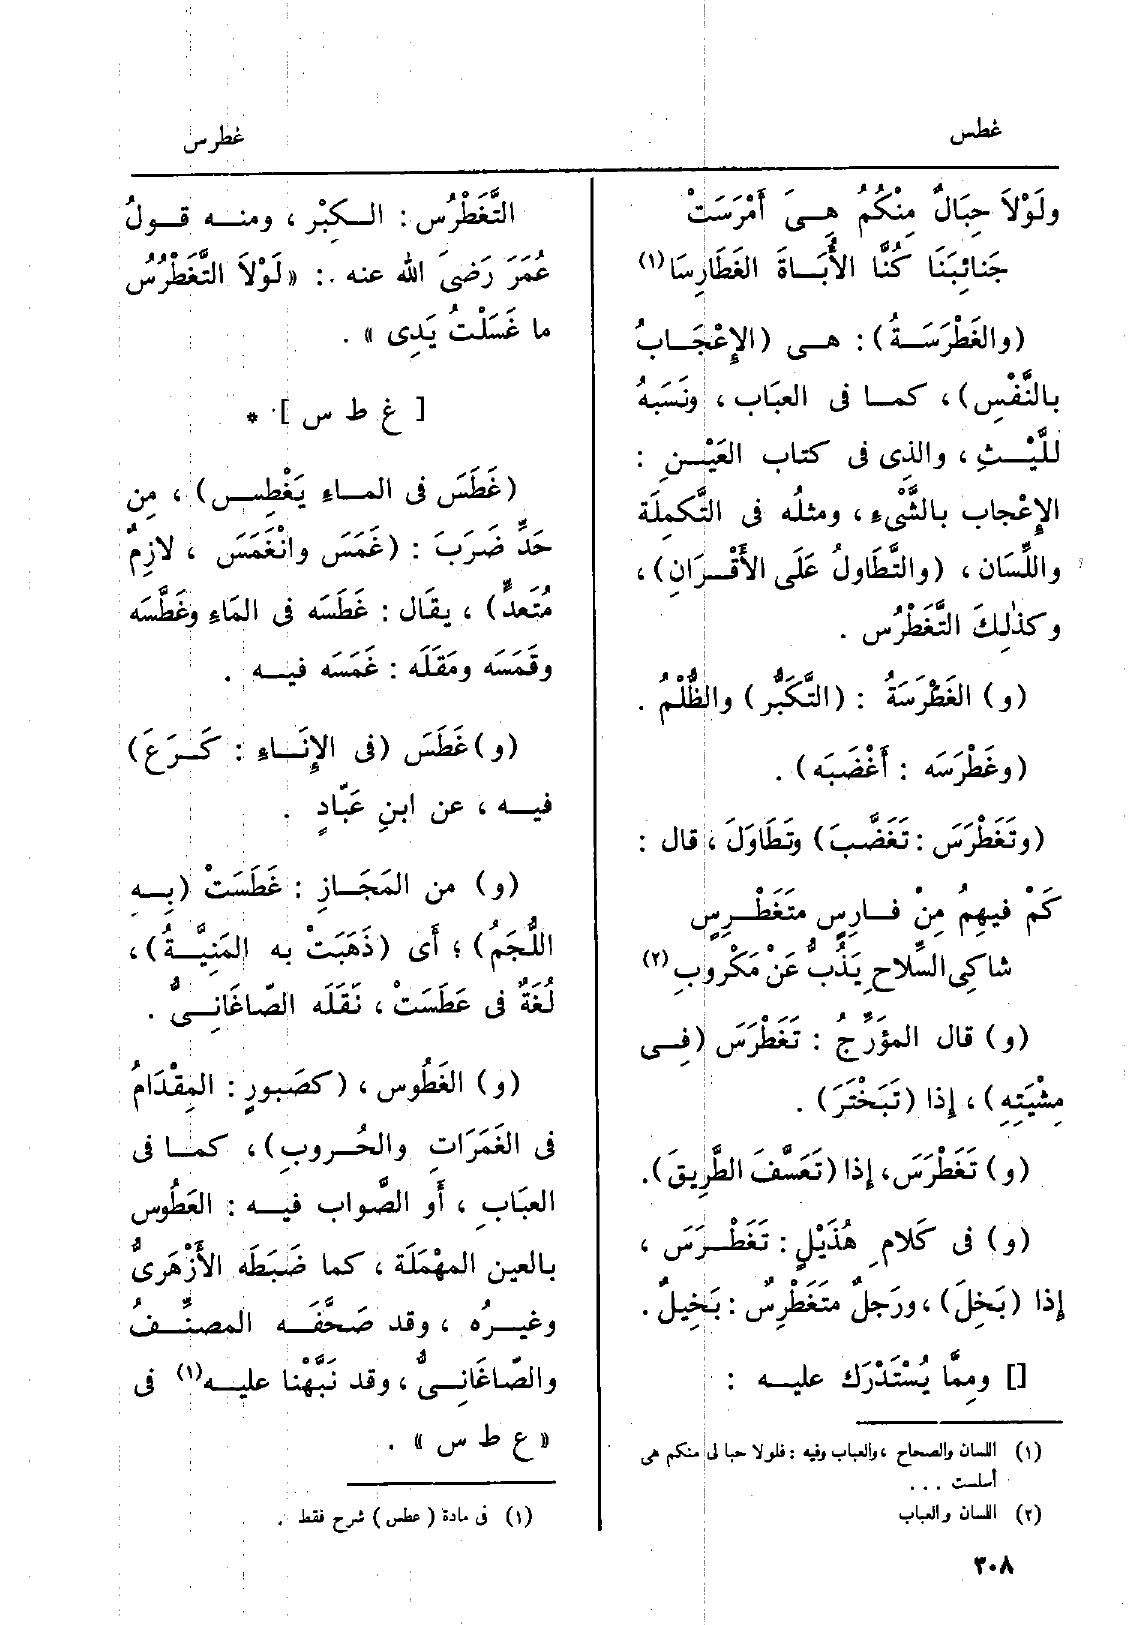 غطس
غطرس
ولَوْلاَ حِبَالٌ مِنْكُمُ هِىَ أَمْرَسَتْ
جَنائِبَنَا كُنَّا الأُبَاةَ الغَطَارِسَا (١)
(والغَطْرَسَةُ) : هى (الإِعْجَابُ
بالنَّفْسِ) ، كما فى العبَاب ، ونَسَبَهُ
للَّيْثِ ، والذِى فى كتاب العَيْنِ :
الإِعْجاب بالشَّىْءِ ، ومثلُه فى التَّكمِلَة
واللِّسَان ، (والتَّطَاولُ عَلَى الأَقْرَانِ) ،
وكذٰلِكَ التَّغَطْرُس .
(و) الغَطْرَسَةُ : (التَّكَبُّر) والظُّلْمُ .
(وغَطْرَسَه : أَغْضَبَه) .
(وتَغَطْرَسَ : تَغَضَّبَ) وتَطَاوَلَ ، قال :
كَمْ فيهِمُ مِنْ فارِسٍ متَغَطْرِسٍ
شاكِى السِّلاحِ يَذُبُّ عَنْ مَكْروبِ (٢)
(و) قال المؤَرِّجُ : تَغَطْرَسَ (فِى
مِشْيَتِهِ) ، إذا (تَبَخْتَرَ) .
(و) تَغَطْرَسَ ، إذا (تَعَسَّفَ الطَّرِيقَ) .
(و) فى كَلامِ هُذَيْلٍ : تَغَطْرَسَ ،
إذا (بَخِلَ) ، ورَجلٌ متَغَطْرِسٌ : بَخِيلٌ .
[] ومِمَّا يُسْتَدْرَك عليه :
(١) اللسان والصحاح ، والعباب وفيه : فلولا حبالى منكم هى
أسلست ...
(٢) اللسان والعباب
التَّغَطْرُس : الكِبْر ، ومنه قولُ
عُمَرَ رَضىَ الله عنه : « لَوْلاَ التَّغَطْرُسُ
ما غَسَلْتُ يَدِى » .
[ غ ط س ] *
(غَطَسَ فى الماءِ يَغْطِس) ، مِن
حَدِّ ضَرَبَ : (غَمَسَ وانْغَمَسَ ، لازِمٌ
مُتَعدٍّ) ، يقَال : غَطَسَه فى المَاءِ وغَطَّسَه
وقَمَسَه ومَقَلَه : غَمَسَه فيه .
(و) غَطَسَ (فى الإِنَاءِ : كَرَعَ)
فيه ، عن ابنِ عَبّادٍ .
(و) من المَجَازِ : غَطَسَتْ (بِه
اللُّجَمُ) ؛ أى (ذَهَبَتْ به المَنِيَّةُ) ،
لُغَةٌ فى عَطَسَتْ ، نَقَلَه الصّاغَانِىُّ .
(و) الغَطُوس ، (كصَبورٍ : المِقْدَامُ
فى الغَمَرَاتِ والحُروبِ) ، كما فى
العبَابِ ، أَو الصَّواب فيه : العَطُوس
بالعين المهْمَلَة ، كما ضَبَطَه الأَزْهَرىُّ
وغيرُه ، وقد صَحَّفَه المصنِّفُ
والصّاغَانِىُّ ، وقد نَبَّهْنا عليه (١) فى
« ع ط س » .
(١) فى مادة (عطس) شرح فقط .
٣٠٨